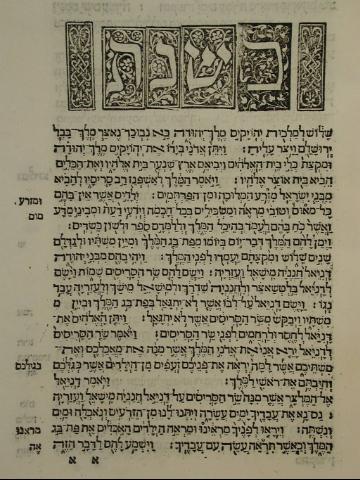 בשנת
שלוש למלכות יהויקים מלך יהודה בא נבוכדנאצר מלך בבל
ירושלם ויצר עליה: ויתן אדני בידו את יהויקים מלך יהודה
ומקצת כלי בית האלהים ויביאם ארץ שנער בית אלהיו ואת הכלים
הביא בית אוצר אלהיו: ויאמר המלך לאשפנז רב סריסיו להביא
מבני ישראל מזרע המלוכה ומן הפרתמים: ילדים אשר אין בהם
כל מאום וטובי מראה ומשכילים בכל חכמה וידעי דעת ומביני מדע
ואשר כח בהם לעמד בהיכל המלך וללמדם ספר ולשון כשדים:
וימן להם המלך דבר יום ביומו מפת בג המלך ומיין משתיו ולגדלם
שנים שלוש ומקצתם יעמדו לפני המלך: ויהי בהם מבני יהודה
דניאל חנניה מישאל ועזריה: וישם להם שר הסריסים שמות וישם
לדניאל בלטשאצר ולחנניה שדרך ולמישאל מישך ולעזריה עבד
נגו: וישם דניאל על לבו אשר לא יתגאל בפת בג המלך וביין
משתיו ויבקש משר הסריסים אשר לא יתגאל: ויתן האלהים את
דניאל לחסד ולרחמים לפני שר הסריסים: ויאמר שר הסריסים
לדניאל ירא אני את אדני המלך אשר מנה את מאכלכם ואת
משתיכם אשר למה יראה את פניכם זעפים מן הילדים אשר כגלכם
וחיבתם את ראשי למלך: ויאמר דניאל
אל המלצר אשר מנה שר הסריסים על דניאל חנניה מישאל ועזריה
: נס נא את עבדיך ימים עשרה ויתנו לנו מן הזרעים ונאכלה ומים
ונשתה: ויראו לפניך מראינו ומראה הילדים האכלים את פת בג
המלך וכאשר תראה עשה עם עבדיך: וישמע להם לדבר הזה
ומזרע
מום
בגלכם
מראנו
אה
א א